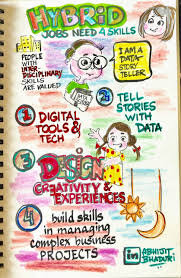 HYBRID
JOBS NEED 4 SKILLS
PEOPLE
WITH
INTER-
DISCIPLINARY
SKILLS
ARE VALUED
I AM A
DATA-
STORY
TELLER
1 DIGITAL
TOOLS &
TECH
2 TELL
STORIES
WITH
DATA
3 DESIGN
CREATIVITY &
EXPERIENCES
4 build skills
in managing
complex business
PROJECTS
in ABHIJIT
BHADURI